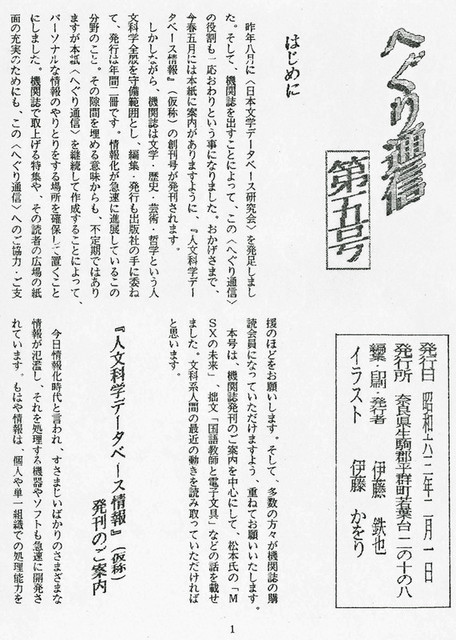 へぐり通信
第五号
発行日 昭和六二年二月一日
発行所 奈良県生駒郡平群町若葉台二の十の八
編集・印刷・発行者 伊藤 鉄也
イラスト 伊藤 かをり
はじめに
昨年八月に〈日本文学データベース研究会〉を発足しまし
た。そして、機関誌を出すことによって、この〈へぐり通信〉
の役割も一応おわりという事になりました。おかげさまで、
今春五月には本紙に案内がありますように、『人文科学デー
タベース情報』(仮称)の創刊号が発刊されます。
しかしながら、機関誌は文学・歴史・芸術・哲学という人
文科学全般を守備範囲とし、編集・発行も出版社の手に委ね
て、発行は年間二冊です。情報化が急速に進展しているこの
分野のこと。その隙間を埋める意味からも、不定期ではあり
ますが本誌〈へぐり通信〉を継続して作成することによって、
パーソナルな情報のやりとりをする場所を確保して置くこと
にしました。機関誌で取上げる特集や、その読者の広場の紙
面の充実のためにも、この〈へぐり通信〉へのご協力・ご支
援のほどをお願いします。そして、多数の方々が機関誌の購
読会員になっていただけますよう、重ねてお願いいたします。
本号は、機関誌発刊のご案内を中心にして、松本氏の「M
SXの未来」、拙文「国語教師と電子文具」などの話を載せ
ました。文科系人間の最近の動きを読み取っていただければ
と思います。
『人文科学データベース情報』(仮称)
発刊のご案内
今日情報化時代と言われ、すさまじいばかりのさまざまな
情報が氾濫し、それを処理する機器やソフトも急速に開発さ
れています。もはや情報は、個人や単一組織での処理能力を
1